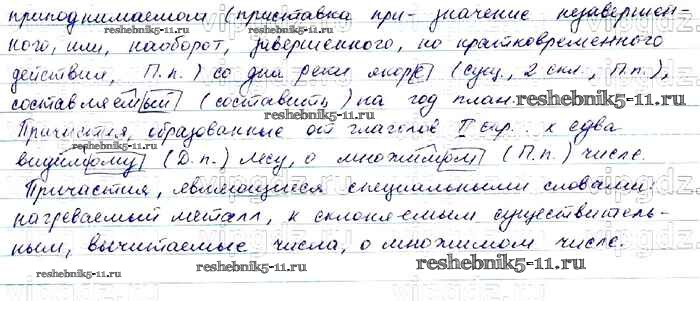 приподнимаемом (приставка при- значение незавершен-
ного, или, наоборот, завершенного, но кратковременного
действия, П.п.) со дна реки якоре (сущ., 2 скл., П.п.),
составляемый (составить) на год план.
Причастия, образованные от глаголов II спр.: к едва
видимому (Д.п.) лесу, о множимом (П.п.) числе.
Причастия, являющиеся специальными словами:
нагреваемый металл, к склоняемым существитель-
ным, вычитаемые числа, о множимом числе.
reshebnik5-11.ru
reshebnik5-11.ru
reshebnik5-11.ru
reshebnik5-11.ru
reshebnik5-11.ru